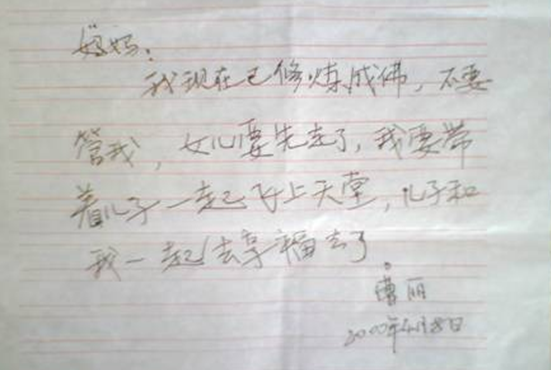 妈妈:
我现在已修炼成佛,不要
管我,女儿要先走了,我要带
着儿子一起飞上天堂,儿子和
我一起去享福去了。
曹丽
2000年4月8日